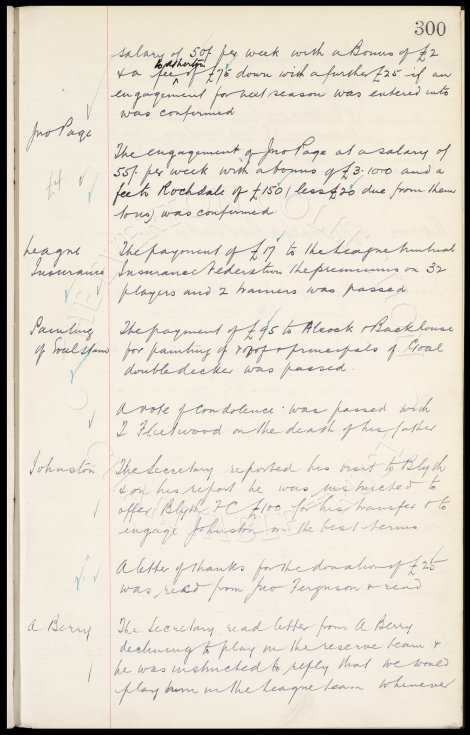 300
salary of 50/ per week with a Bonus of £2
to Atherton
& a fee of £75 down with a further £25 if an
engagement for next season was entered into
was confirmed
Jno Page
The engagement of Jno Page at a salary of
55/ per week with a bonus of £3.10.0 and a
£4
fee to Rochdale of £150 (less £20 due from them
to us) was confirmed
League
Insurance
The payment of £17 to the League Mutual
Insurance Federation the premiums on 32
players and 2 trainers was passed.
Painting
of Goal Stand
The payment of £95 to Alcock & Backhouse
for painting of roof & principals of Goal
double decker was passed.
A vote of Condolence was passed with
T Fleetwood on the death of his father
Johnston
The Secretary reported his visit to Blyth
& on his report he was instructed to
offer Blyth F C £100 for his transfer & to
engage Johnston on the best terms
A letter of thanks for the donation of £25
was recd from Jno Ferguson & read
A Berry
The Secretary read letter from A Berry
declining to play in the reserve team &
he was instructed to reply that we would
play him in the League team whenever